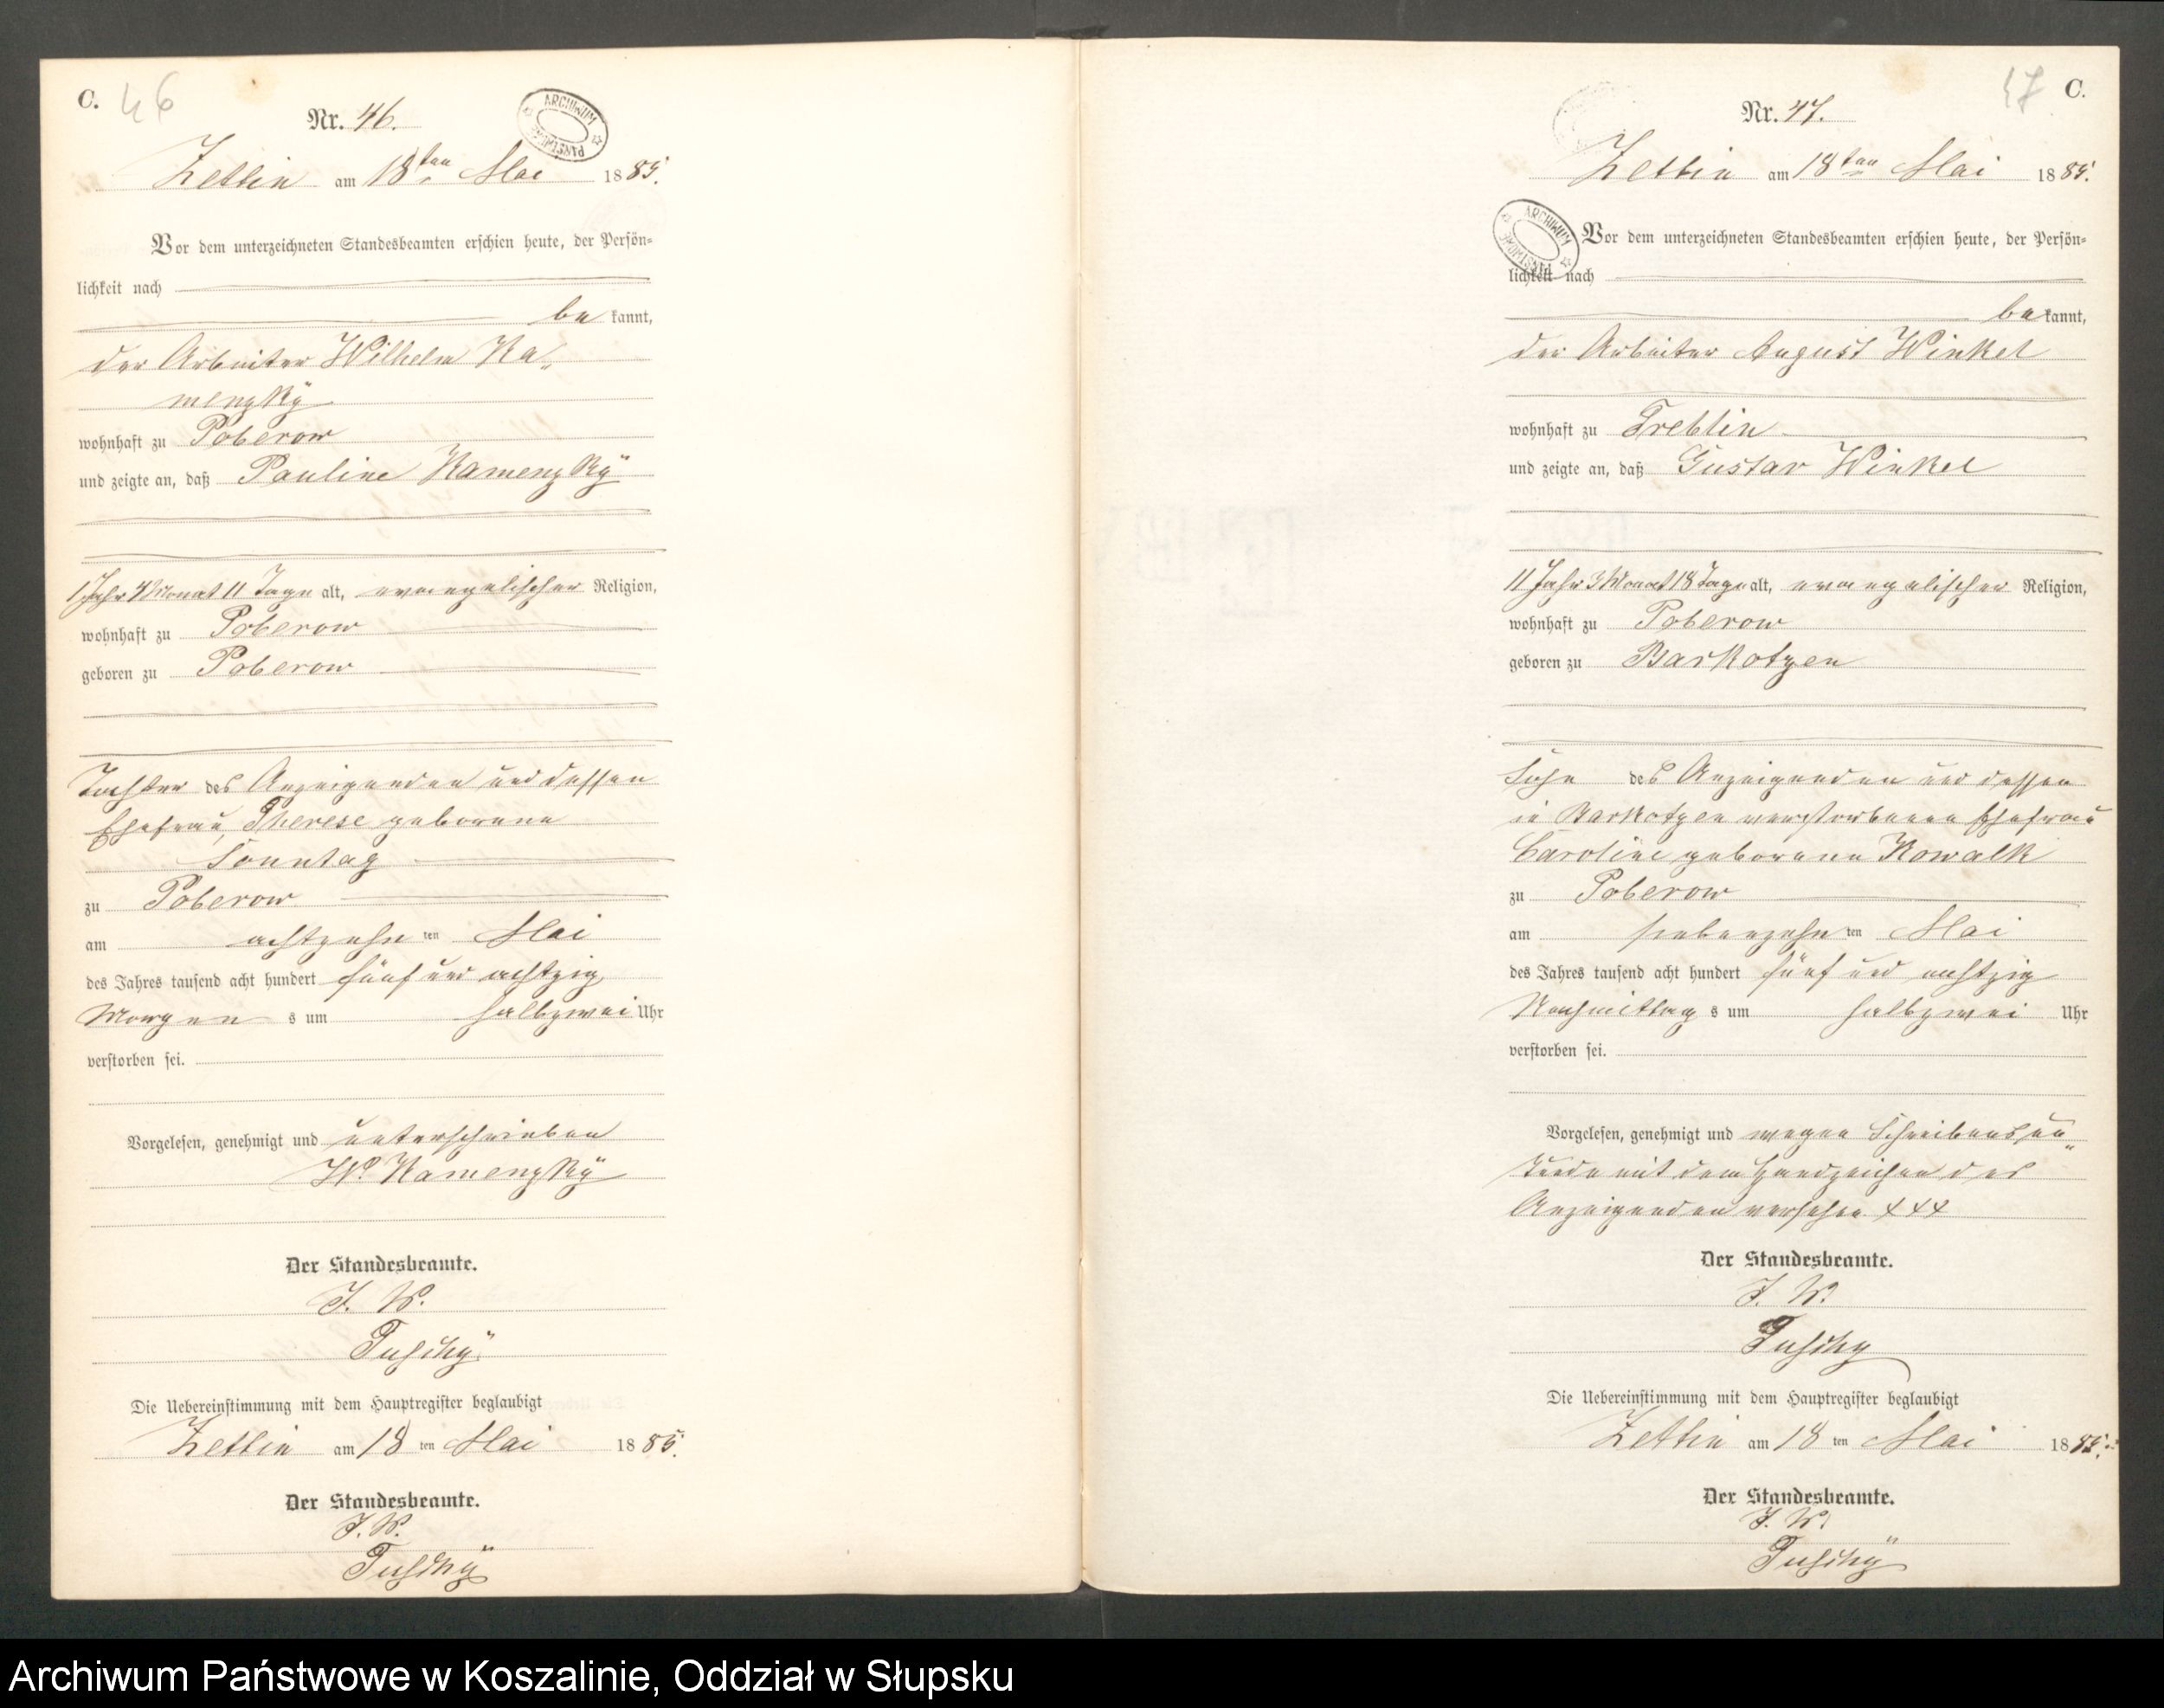 C. 46
Nr. 46.
ARCHIWUM PAŃSTWOWE
Zettin am 18ten Mai 1885.
Vor dem unterzeichneten Standesbeamten erschien heute, der Persön=
lichkeit nach
be kannt,
der Arbeiter Wilhelm Ka„
menzky
wohnhaft zu Poberow
und zeigte an, daß Pauline Kamenzky
1 Jahr 4 Monat 11 Tage alt, evangelischer Religion,
wohnhaft zu Poberow
geboren zu Poberow
Tochter des Anzeigenden und dessen
Ehefrau, Therese geborene
Sonntag
zu Poberow
am achtzehn ten Mai
des Jahres tausend acht hundert fünf und achtzig
Morgen s um halbzwei Uhr
verstorben sei.
Vorgelesen, genehmigt und unterschrieben
W. Kamenzky
Der Standesbeamte.
J. V.
Die Uebereinstimmung mit dem Hauptregister beglaubigt
Zettin am 18 ten Mai 1885.
Der Standesbeamte.
J. V.
47 C.
Nr. 47.
Zettin am 18ten Mai 1885.
ARCHIWUM PAŃSTWOWE
Vor dem unterzeichneten Standesbeamten erschien heute, der Persön=
lichkeit nach
be kannt,
der Arbeiter August Winkel
wohnhaft zu Treblin
und zeigte an, daß Gustav Winkel
11 Jahr 3 Monat 18 Tage alt, evangelischer Religion,
wohnhaft zu Poberow
geboren zu Barkotzen
Sohn des Anzeigenden und dessen
in Barkotzen verstorbenen Ehefrau
Caroline geborene Kowalk
zu Poberow
am siebenzehn ten Mai
des Jahres tausend acht hundert fünf und achtzig
Nachmittag s um halbzwei Uhr
verstorben sei.
Vorgelesen, genehmigt und wegen Schreibensun„
kunde mit dem Handzeichen des
Anzeigenden versehen. +++
Der Standesbeamte.
J. V.
Die Uebereinstimmung mit dem Hauptregister beglaubigt
Zettin am 18 ten Mai 1885.
Der Standesbeamte.
J. V.
Archiwum Państwowe w Koszalinie, Oddział w Słupsku